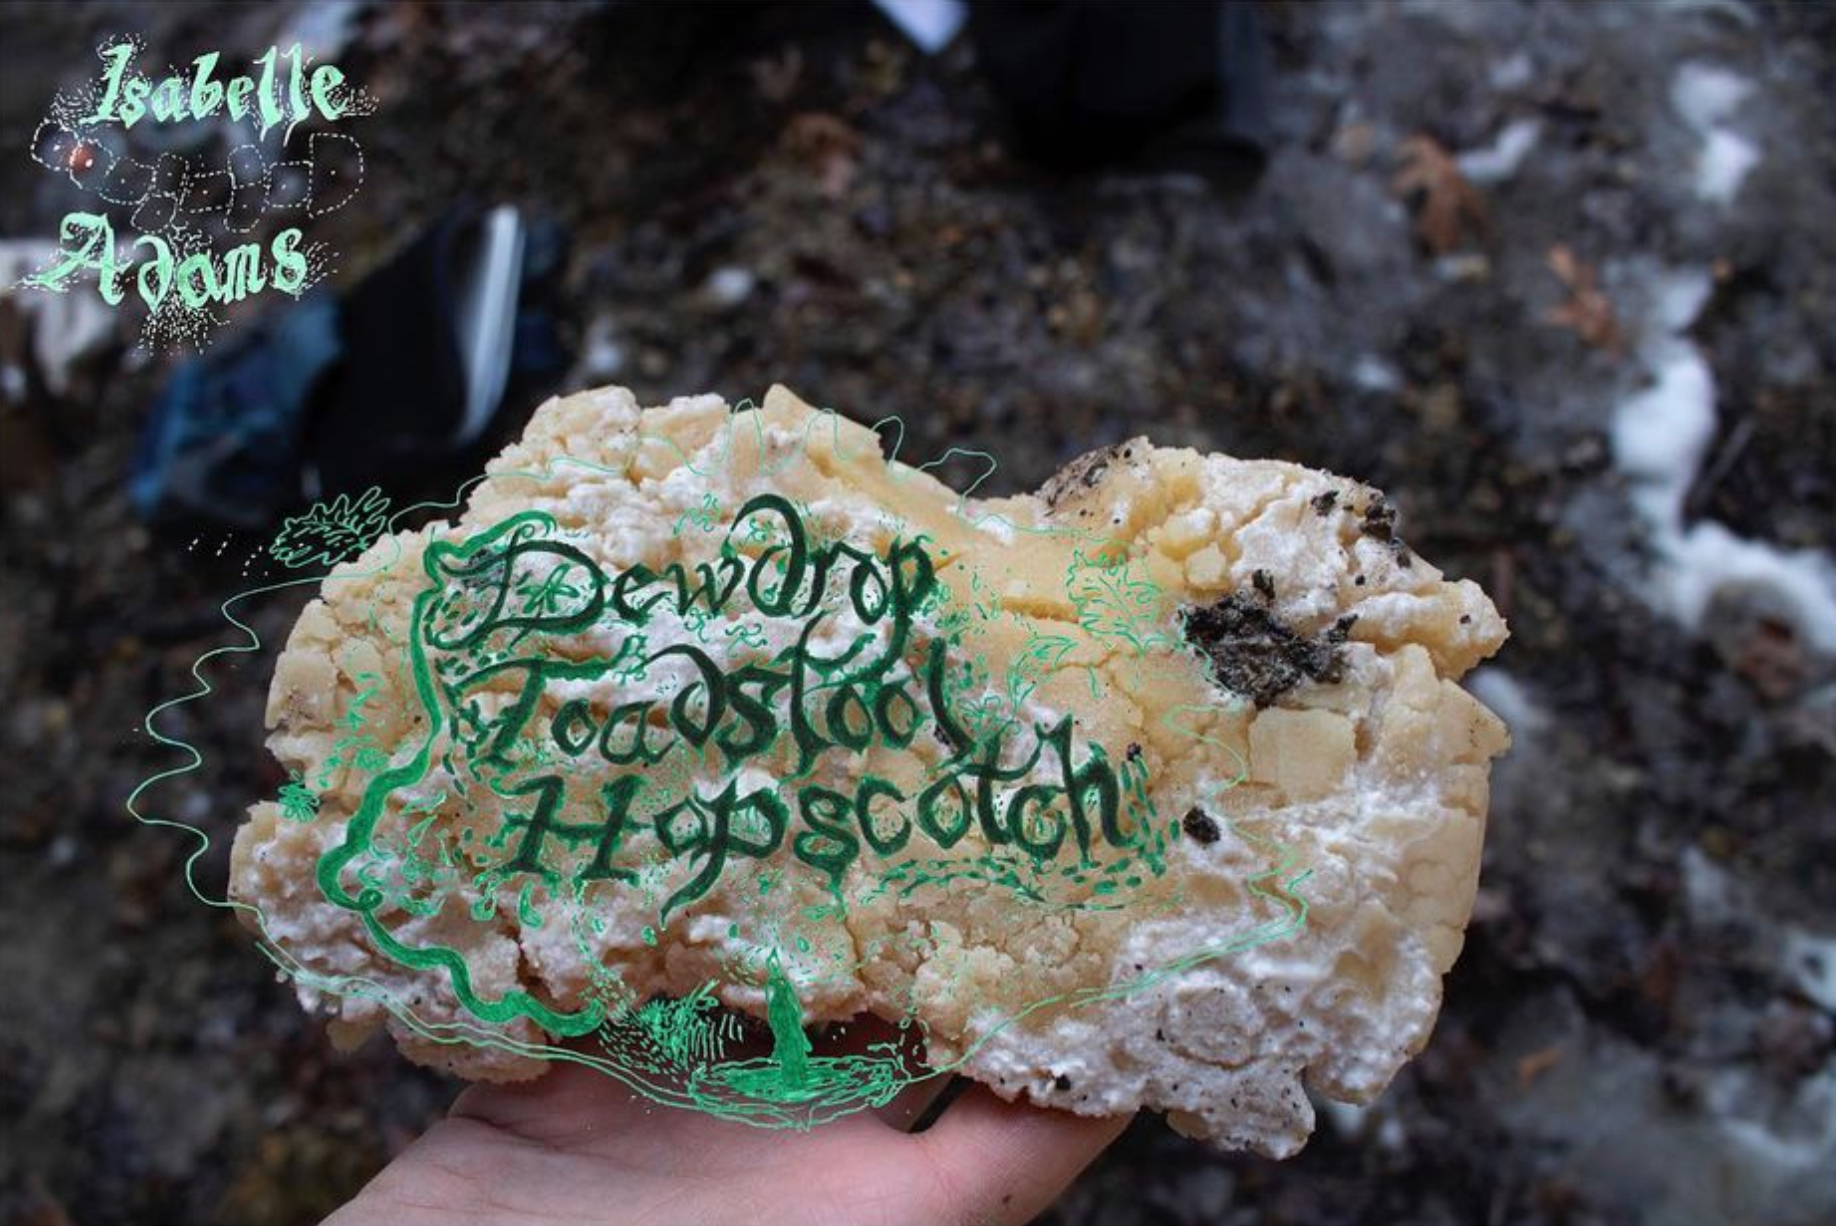 Isabelle
Adams
Dewdrop
Toadstool
Hopscotch